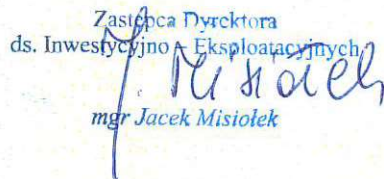 Zastępca Dyrektora
ds. Inwestycyjno - Eksploatacyjnych
J. Misiołek
mgr Jacek Misiołek